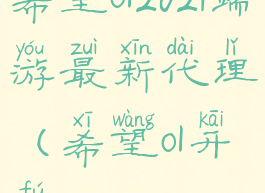 希望01202|端
yóu zuì xīn dài lǐ
游最新代理
xī wàng kāi
(希望01开
fú